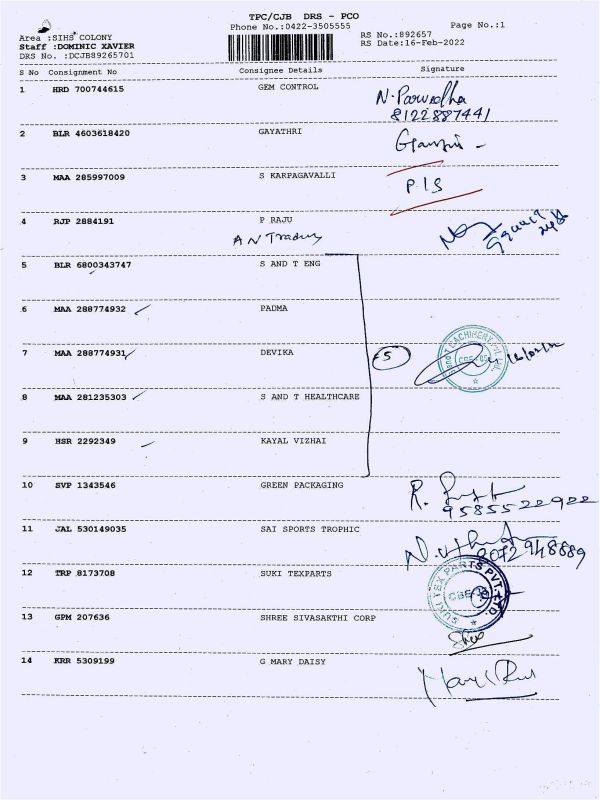 TPC/CJB DRS - PCO
Phone No.:0422-3505555 Page No.:1
Area :SIHS COLONY RS No.:892657
Staff :DOMINIC XAVIER RS Date:16-Feb-2022
DRS No. :DCJB89265701
S No Consignment No Consignee Details Signature
1 HRD 700744615 GEM CONTROL
8122887441
2 BLR 4603618420 GAYATHRI
3 MAA 285997009 S KARPAGAVALLI
P/S
4 RJP 2884191 P RAJU
A N Trading
5 BLR 6800343747 S AND T ENG
6 MAA 288774932 PADMA
7 MAA 288774931 DEVIKA 5
8 MAA 281235303 S AND T HEALTHCARE
9 HSR 2292349 KAYAL VIZHAI
10 SVP 1343546 GREEN PACKAGING
9585522922
11 JAL 530149035 SAI SPORTS TROPHIC
8072948889
12 TRP 8173708 SUKI TEXPARTS
SUKI TEX PARTS PVT. LTD.
13 GPM 207636 SHREE SIVASAKTHI CORP
14 KRR 5309199 G MARY DAISY